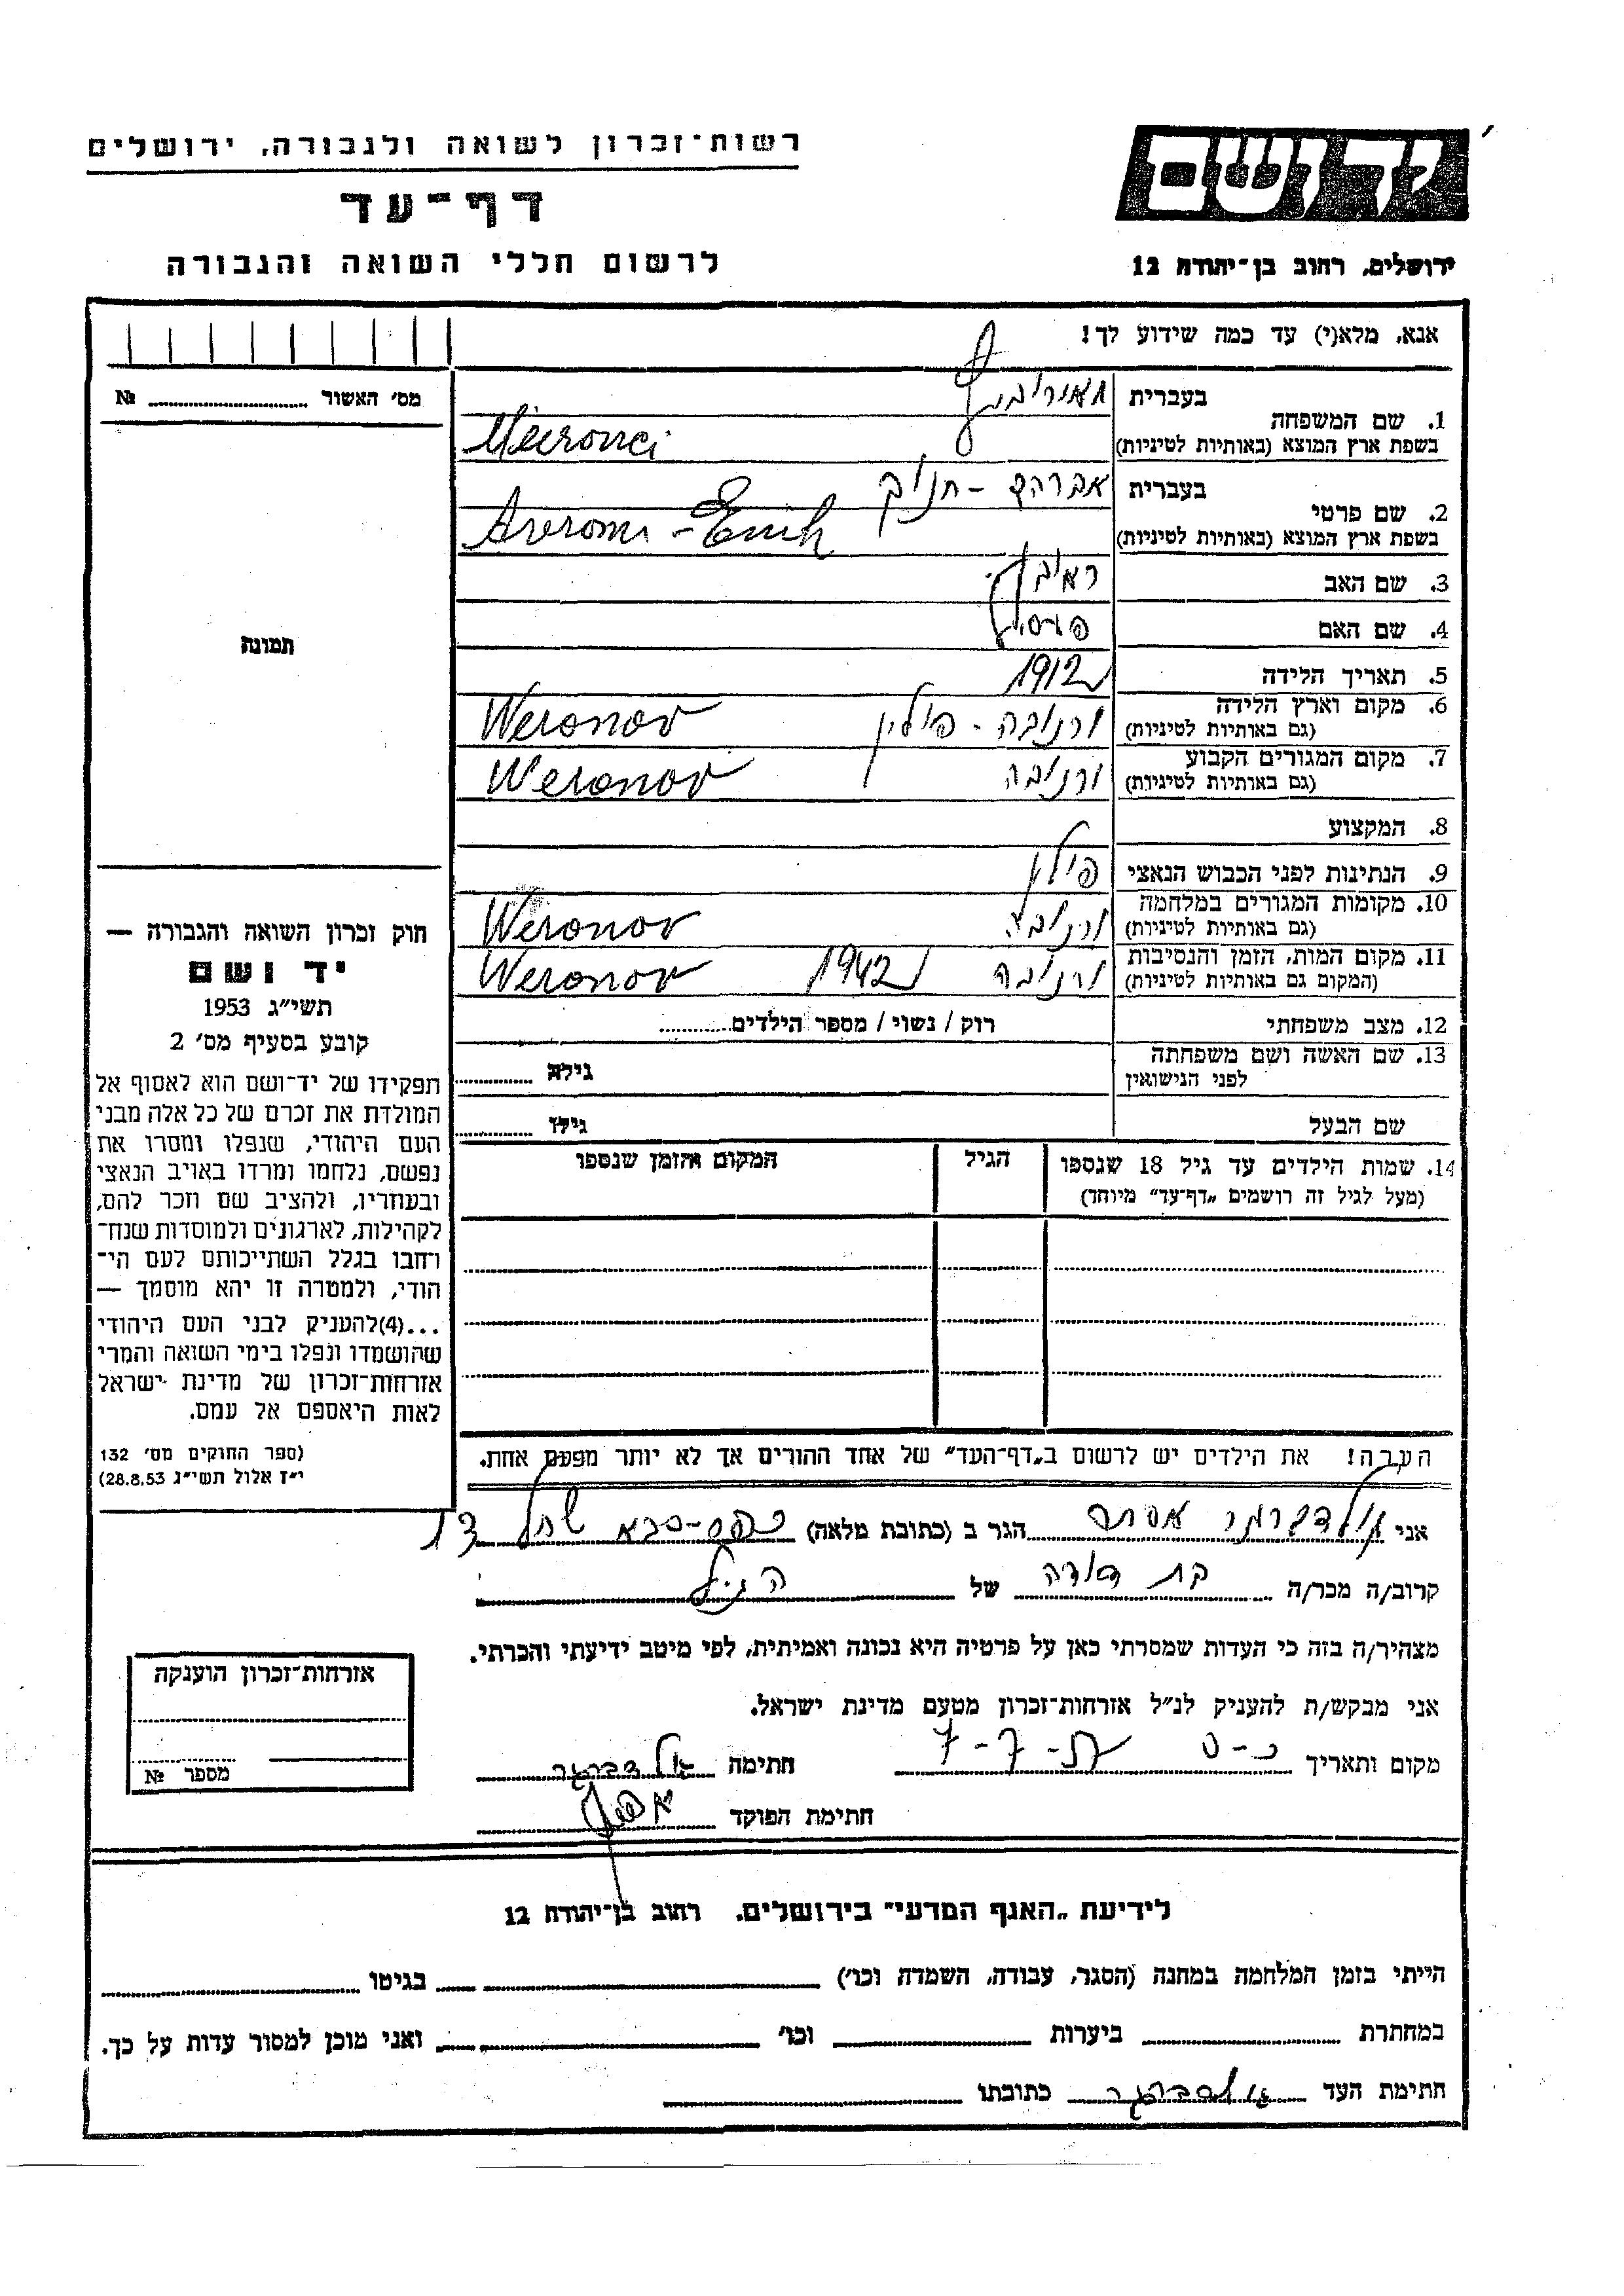 רשות־זכרון לשואה ולגבורה, ירושלים
דף־עד
לרשום חללי השואה והגבורה
יד ושם
ירושלים, רחוב בן־יהודה 12
אנא, מלא(י) עד כמה שידוע לך!
מס׳ האשור № 
תמונה
1. שם המשפחה
בעברית
בשפת ארץ המוצא (באותיות לטיניות)
2. שם פרטי
בעברית אברהם - חנוך
בשפת ארץ המוצא (באותיות לטיניות)
3. שם האב ראובן
4. שם האם
5. תאריך הלידה 1912
6. מקום וארץ הלידה
(גם באותיות לטיניות) ורנובה - פולין Weronov
7. מקום המגורים הקבוע
(גם באותיות לטיניות) ורנובה Weronov
8. המקצוע
9. הנתינות לפני הכבוש הנאצי פולין
10. מקומות המגורים במלחמה
(גם באותיות לטיניות) ורנובה Weronov
11. מקום המות, הזמן והנסיבות
(המקום גם באותיות לטיניות) ורנובה 1942 Weronov
12. מצב משפחתי רוק / נשוי / מספר הילדים
13. שם האשה ושם משפחתה
לפני הנישואין גילה
שם הבעל גילו
14. שמות הילדים עד גיל 18 שנספו הגיל המקום והזמן שנספו
(מעל לגיל זה רושמים „דף־עד״ מיוחד)
חוק זכרון השואה והגבורה —
יד ושם
תשי״ג 1953
קובע בסעיף מס׳ 2
תפקידו של יד־ושם הוא לאסוף אל
המולדת את זכרם של כל אלה מבני
העם היהודי, שנפלו ומסרו את
נפשם, נלחמו ומרדו באויב הנאצי
ובעוזריו, ולהציב שם וזכר להם,
לקהילות, לארגונים ולמוסדות שנח־
רחבו בגלל השתייכותם לעם הי־
הודי, ולמטרה זו יהא מוסמך —
...(4) להעניק לבני העם היהודי
שהושמדו ונפלו בימי השואה והמרי
אזרחות־זכרון של מדינת ישראל
לאות היאספם אל עמם.
(ספר החוקים מס׳ 132
י״ז אלול תשי״ג 28.8.53)
הערה! את הילדים יש לרשום ב„דף־העד״ של אחד ההורים אך לא יותר מפעם אחת.
אני הגר ב (כתובת מלאה) כפר-סבא
קרוב/ה מכר/ה בת דודה של הנ״ל
מצהיר/ה בזה כי העדות שמסרתי כאן על פרטיה היא נכונה ואמיתית, לפי מיטב ידיעתי והכרתי.
אני מבקש/ת להעניק לנ״ל אזרחות־זכרון מטעם מדינת ישראל.
מקום ותאריך כ-ס חתימה
חתימת הפוקד
אזרחות־זכרון הוענקה
מספר №
לידיעת „האגף המדעי״ בירושלים, רחוב בן־יהודה 12
הייתי בזמן המלחמה במחנה (הסגר, עבודה, השמדה וכו׳) בגיטו
במחתרת ביערות וכו׳ ואני מוכן למסור עדות על כך.
חתימת העד כתובתו